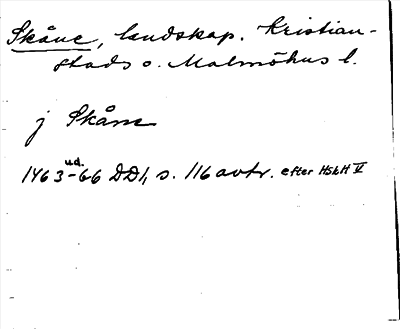 Skåne, landskap. Kristian-
stads o. Malmöhus l.
j Skåne
ud.
1463-66 DD1, s. 116 avtr. efter HSkH V